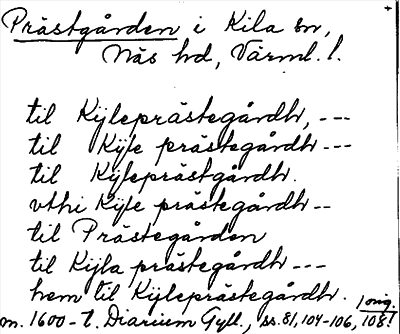 Prästgården i Kila sn,
Näs hd, Värml. l.
til Kÿleprästegårdh, ---
til Kÿle prästegårdh ---
til Kÿleprästgårdh.
vthi Kÿle prästegårdh --
til Prästegården
til Kÿla prästegårdh ---
hem til Kÿleprästegårdh.
m. 1600-t. Diarium Gyll., ss. 81, 104-106, 108!
1 orig.